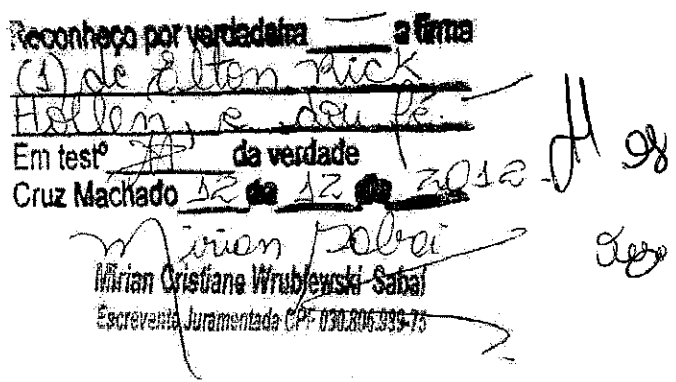 Reconheço por verdadeira a firma
(1) de Elton Rick
Hollen, e dou fé.
Em testº da verdade
Cruz Machado 12 de 12 de 2012
Mirian Sabai
Mirian Cristiane Wrublewski Sabai
Escrevente Juramentada CPF 030.806.939-75